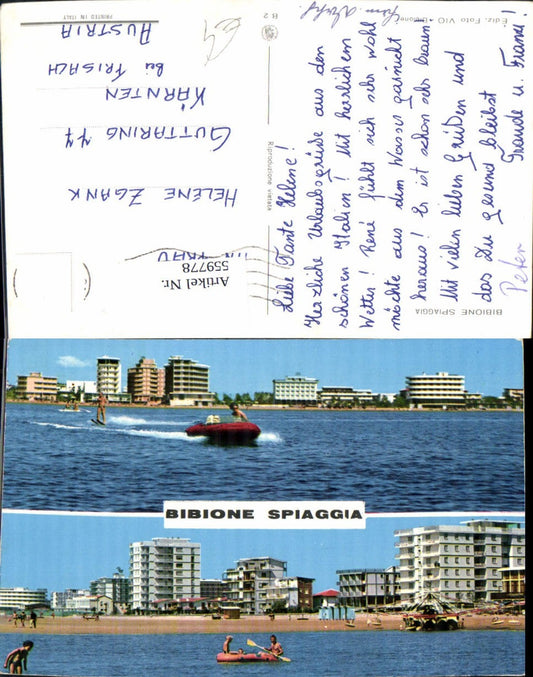 Ediz. Foto VIO - Bibione
B 2
Riproduzione vietata
BIBIONE SPIAGGIA
PRINTED IN ITALY
Liebe Tante Helene!
Herzliche Urlaubsgrüße aus dem
schönen Italien! Mit herrlichem
Wetter! René fühlt sich sehr wohl
möchte aus dem Wasser garnicht
heraus! Er ist schon sehr braun!
Mit vielen lieben Grüßen und
das Du gesund bleibst
Traude u. Franz!
Peter
Artikel Nr.
559778
HELENE ZGANK
GUTTARING 77
KÄRNTEN
bei FRISACH
AUSTRIA
BIBIONE SPIAGGIA